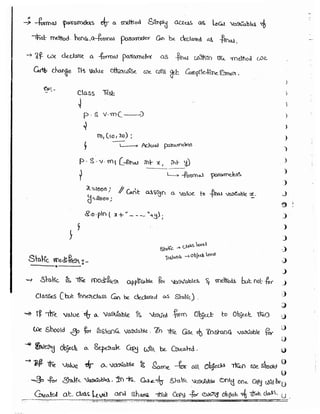 → formal parameters of a method Simply access as Local Variables of
that method hence, a formal parameter Can be declared as final.
→ If we declare a formal parameter as final within the method we
Can't change its value otherwise we will get CompileTime Error.
Ex:-
Class Test
{
P. S V.m(——)
{
m1(10,20);
} → Actual parameters
P. S. v. m1 (final int x, int y)
{ → formal parameters
x=1000; // Can't assign a value to final variable x.
y=2000;
S.o.pln( x+"-----"+y);
}
}
Static → class level
Instance → object level
Static modifier:-
→ Static is the modifier applicable for Variables & methods but not for
Classes (but Innerclass Can be declared as Static).
→ If the value of a variable is Varied from Object to Object then
we should go for instance variable. In the Case of Instance variable for
Every object a Seperate Copy will be Created.
→ If the value of a variable is Same for all objects then we should
go for Static variables. In the Case of Static variable only one copy will be
Created at Class Level and share that Copy for every object of that class.